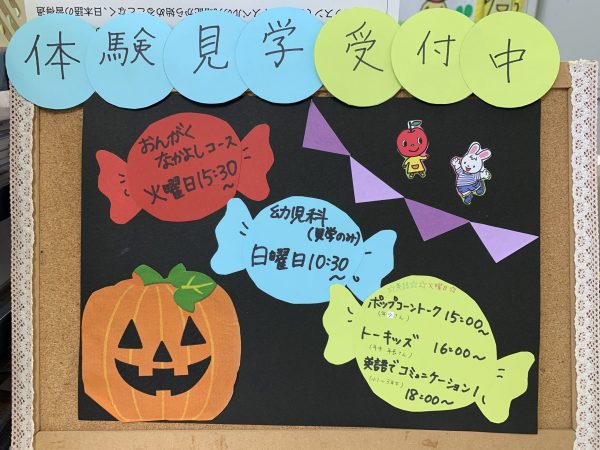 体験見学受付中
おんがく
なかよしコース
火曜日15:30
～
幼児科
(見学のみ)
日曜日10:30
～
ポップコーントーク 15:00～
トーキッズ 16:00～
英語でコミュニケーション1
18:00～